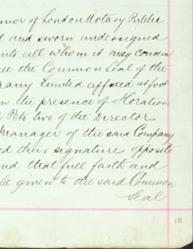 nor of London Notary Public
and sworn undersigned
all whom it may concern
the Common Seal of the
Limited affixed at foot
in the presence of Horation
two of the Director
Manager of the said Company
their signature opposite
and that full faith and
be given to the said Common
Seal